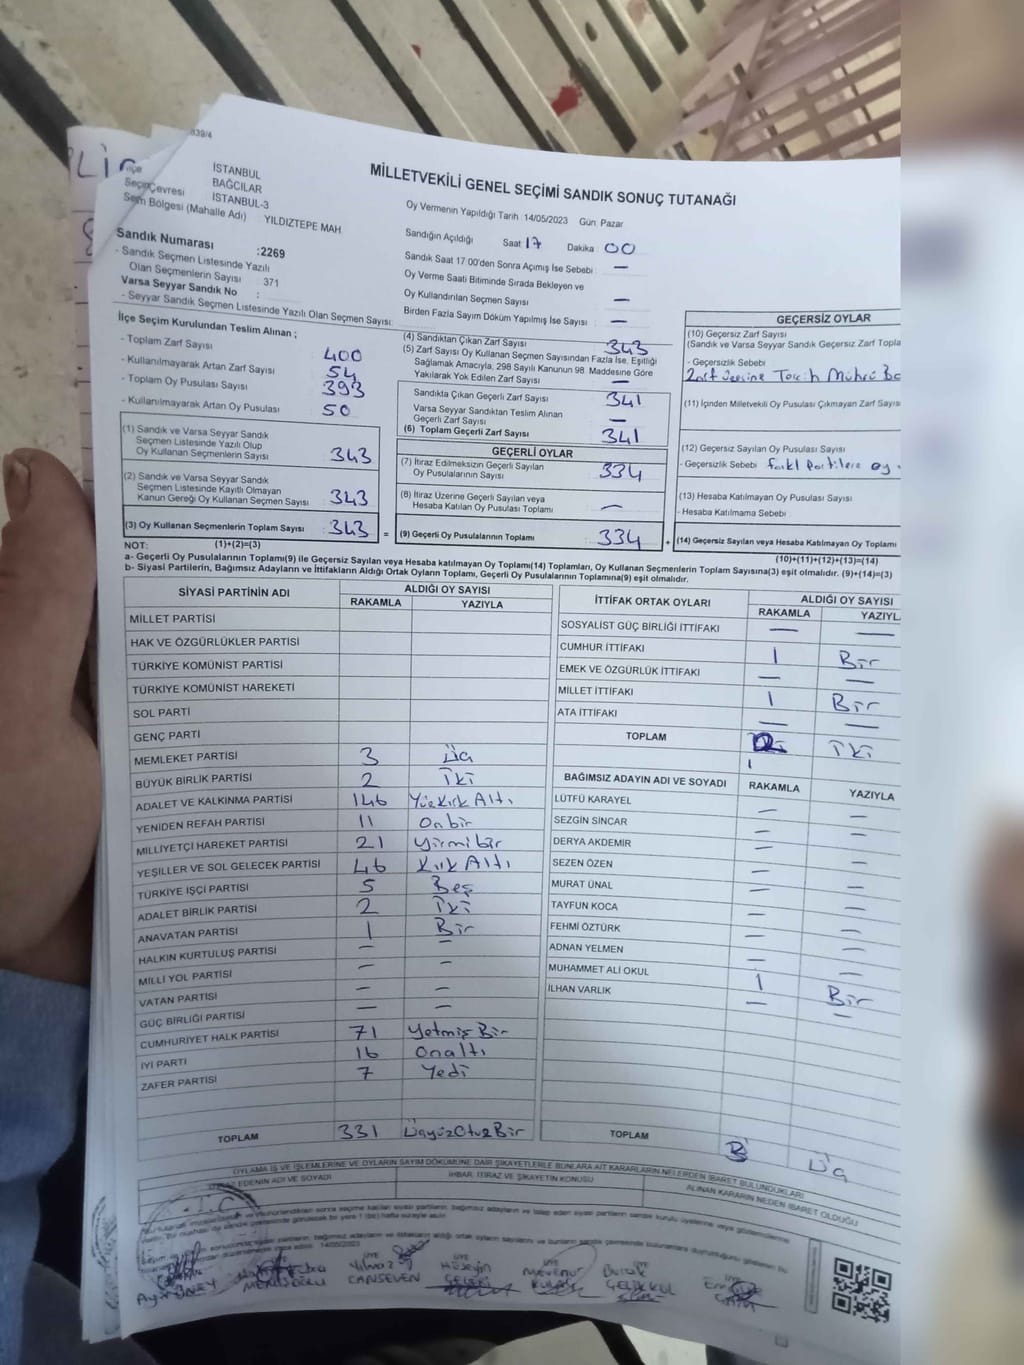 839/4
MİLLETVEKİLİ GENEL SEÇİMİ SANDIK SONUÇ TUTANAĞI
İlçe İSTANBUL
Seçim Çevresi BAĞCILAR
İSTANBUL-3
Seçim Bölgesi (Mahalle Adı) YILDIZTEPE MAH.
Sandık Numarası :2269
- Sandık Seçmen Listesinde Yazılı
Olan Seçmenlerin Sayısı 371
Varsa Seyyar Sandık No :
- Seyyar Sandık Seçmen Listesinde Yazılı Olan Seçmen Sayısı:
Oy Vermenin Yapıldığı Tarih 14/05/2023 Gün: Pazar
Sandığın Açıldığı Saat 17 Dakika : 00
Sandık Saat 17 00'den Sonra Açılmış İse Sebebi : —
Oy Verme Saati Bitiminde Sırada Bekleyen ve
Oy Kullandırılan Seçmen Sayısı : —
Birden Fazla Sayım Döküm Yapılmış İse Sayısı : —
İlçe Seçim Kurulundan Teslim Alınan ;
- Toplam Zarf Sayısı : 400
- Kullanılmayarak Artan Zarf Sayısı : 54
- Toplam Oy Pusulası Sayısı : 393
- Kullanılmayarak Artan Oy Pusulası : 50
(1) Sandık ve Varsa Seyyar Sandık
Seçmen Listesinde Yazılı Olup
Oy Kullanan Seçmenlerin Sayısı : 343
(2) Sandık ve Varsa Seyyar Sandık
Seçmen Listesinde Kayıtlı Olmayan
Kanun Gereği Oy Kullanan Seçmen Sayısı : 343
(3) Oy Kullanan Seçmenlerin Toplam Sayısı : 343
(4) Sandıktan Çıkan Zarf Sayısı : 343
(5) Zarf Sayısı Oy Kullanan Seçmen Sayısından Fazla İse, Eşitliği
Sağlamak Amacıyla, 298 Sayılı Kanunun 98. Maddesine Göre
Yakılarak Yok Edilen Zarf Sayısı : —
Sandıkta Çıkan Geçerli Zarf Sayısı : 341
Varsa Seyyar Sandıktan Teslim Alınan
Geçerli Zarf Sayısı : —
(6) Toplam Geçerli Zarf Sayısı : 341
GEÇERLİ OYLAR
(7) İtiraz Edilmeksizin Geçerli Sayılan
Oy Pusulalarının Sayısı : 334
(8) İtiraz Üzerine Geçerli Sayılan veya
Hesaba Katılan Oy Pusulası Toplamı : —
= (9) Geçerli Oy Pusulalarının Toplamı : 334 +
GEÇERSİZ OYLAR
(10) Geçersiz Zarf Sayısı
(Sandık ve Varsa Seyyar Sandık Geçersiz Zarf Topla
- Geçersizlik Sebebi
Zarf üzerine Tercih Mührü
(11) İçinden Milletvekili Oy Pusulası Çıkmayan Zarf Sayıs
(12) Geçersiz Sayılan Oy Pusulası Sayısı
- Geçersizlik Sebebi : farklı Partilere oy
(13) Hesaba Katılmayan Oy Pusulası Sayısı
- Hesaba Katılmama Sebebi :
(14) Geçersiz Sayılan veya Hesaba Katılmayan Oy Toplamı
NOT: (1)+(2)=(3) (10)+(11)+(12)+(13)=(14)
a- Geçerli Oy Pusulalarının Toplamı(9) ile Geçersiz Sayılan veya Hesaba katılmayan Oy Toplamı(14) Toplamları, Oy Kullanan Seçmenlerin Toplam Sayısına(3) eşit olmalıdır. (9)+(14)=(3)
b- Siyasi Partilerin, Bağımsız Adayların ve İttifakların Aldığı Ortak Oyların Toplamı, Geçerli Oy Pusulalarının Toplamına(9) eşit olmalıdır.
SİYASİ PARTİNİN ADI ALDIĞI OY SAYISI
RAKAMLA YAZIYLA
MİLLET PARTİSİ
HAK VE ÖZGÜRLÜKLER PARTİSİ
TÜRKİYE KOMÜNİST PARTİSİ
TÜRKİYE KOMÜNİST HAREKETİ
SOL PARTİ
GENÇ PARTİ
MEMLEKET PARTİSİ 3 Üç
BÜYÜK BİRLİK PARTİSİ 2 İki
ADALET VE KALKINMA PARTİSİ 146 YüzKırk Altı
YENİDEN REFAH PARTİSİ 11 Onbir
MİLLİYETÇİ HAREKET PARTİSİ 21 Yirmi bir
YEŞİLLER VE SOL GELECEK PARTİSİ 46 Kırk Altı
TÜRKİYE İŞÇİ PARTİSİ 5 Beş
ADALET BİRLİK PARTİSİ 2 İki
ANAVATAN PARTİSİ 1 Bir
HALKIN KURTULUŞ PARTİSİ — —
MİLLİ YOL PARTİSİ — —
VATAN PARTİSİ — —
GÜÇ BİRLİĞİ PARTİSİ — —
CUMHURİYET HALK PARTİSİ 71 Yetmiş Bir
İYİ PARTİ 16 Onaltı
ZAFER PARTİSİ 7 Yedi
TOPLAM 331 ÜçyüzOtuzBir
İTTİFAK ORTAK OYLARI ALDIĞI OY SAYISI
RAKAMLA YAZIYL
SOSYALİST GÜÇ BİRLİĞİ İTTİFAKI — —
CUMHUR İTTİFAKI 1 Bir
EMEK VE ÖZGÜRLÜK İTTİFAKI — —
MİLLET İTTİFAKI 1 Bir
ATA İTTİFAKI — —
TOPLAM İki
BAĞIMSIZ ADAYIN ADI VE SOYADI RAKAMLA YAZIYLA
LÜTFÜ KARAYEL — —
SEZGİN SİNCAR — —
DERYA AKDEMİR — —
SEZEN ÖZEN — —
MURAT ÜNAL — —
TAYFUN KOCA — —
FEHMİ ÖZTÜRK — —
ADNAN YELMEN — —
MUHAMMET ALİ OKUL 1 Bir
İLHAN VARLIK — —
TOPLAM 3 Üç
OYLAMA İŞ VE İŞLEMLERİNE VE OYLARIN SAYIM DÖKÜMÜNE DAİR ŞİKAYETLERLE BUNLARA AİT KARARLARIN NELERDEN İBARET BULUNDUKLARI
EDENİN ADI VE SOYADI İHBAR, İTİRAZ VE ŞİKAYETİN KONUSU ALINAN KARARIN NEDEN İBARET OLDUĞU
14/05/2023
ÜYE ÜYE ÜYE
Yılmaz Hüseyin Burak
CANSEVEN